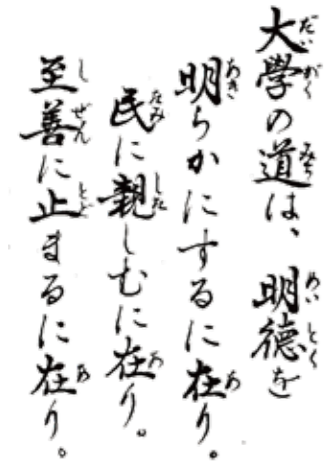 大學の道は、明德を
明らかにするに在り。
民に親しむに在り。
至善に止まるに在り。